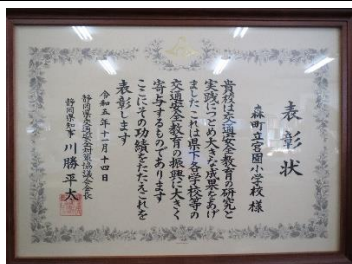 表彰状
森町立宮園小学校 様
貴校は交通安全教育の研究と
実践につとめ大きな成果をあげ
ましたこれは県下各学校等の
交通安全教育の振興に大きく
寄与するものであります
ここにその功績をたたえこれを
表彰します
令和五年十一月十四日
静岡県交通安全対策協議会会長
静岡県知事 川勝平太